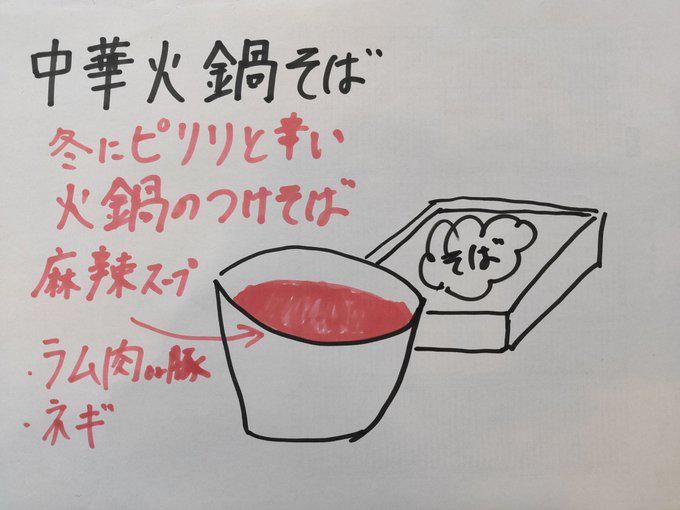 中華火鍋そば
冬にピリリと辛い
火鍋のつけそば
麻辣スープ
・ラム肉or豚
・ネギ
そば